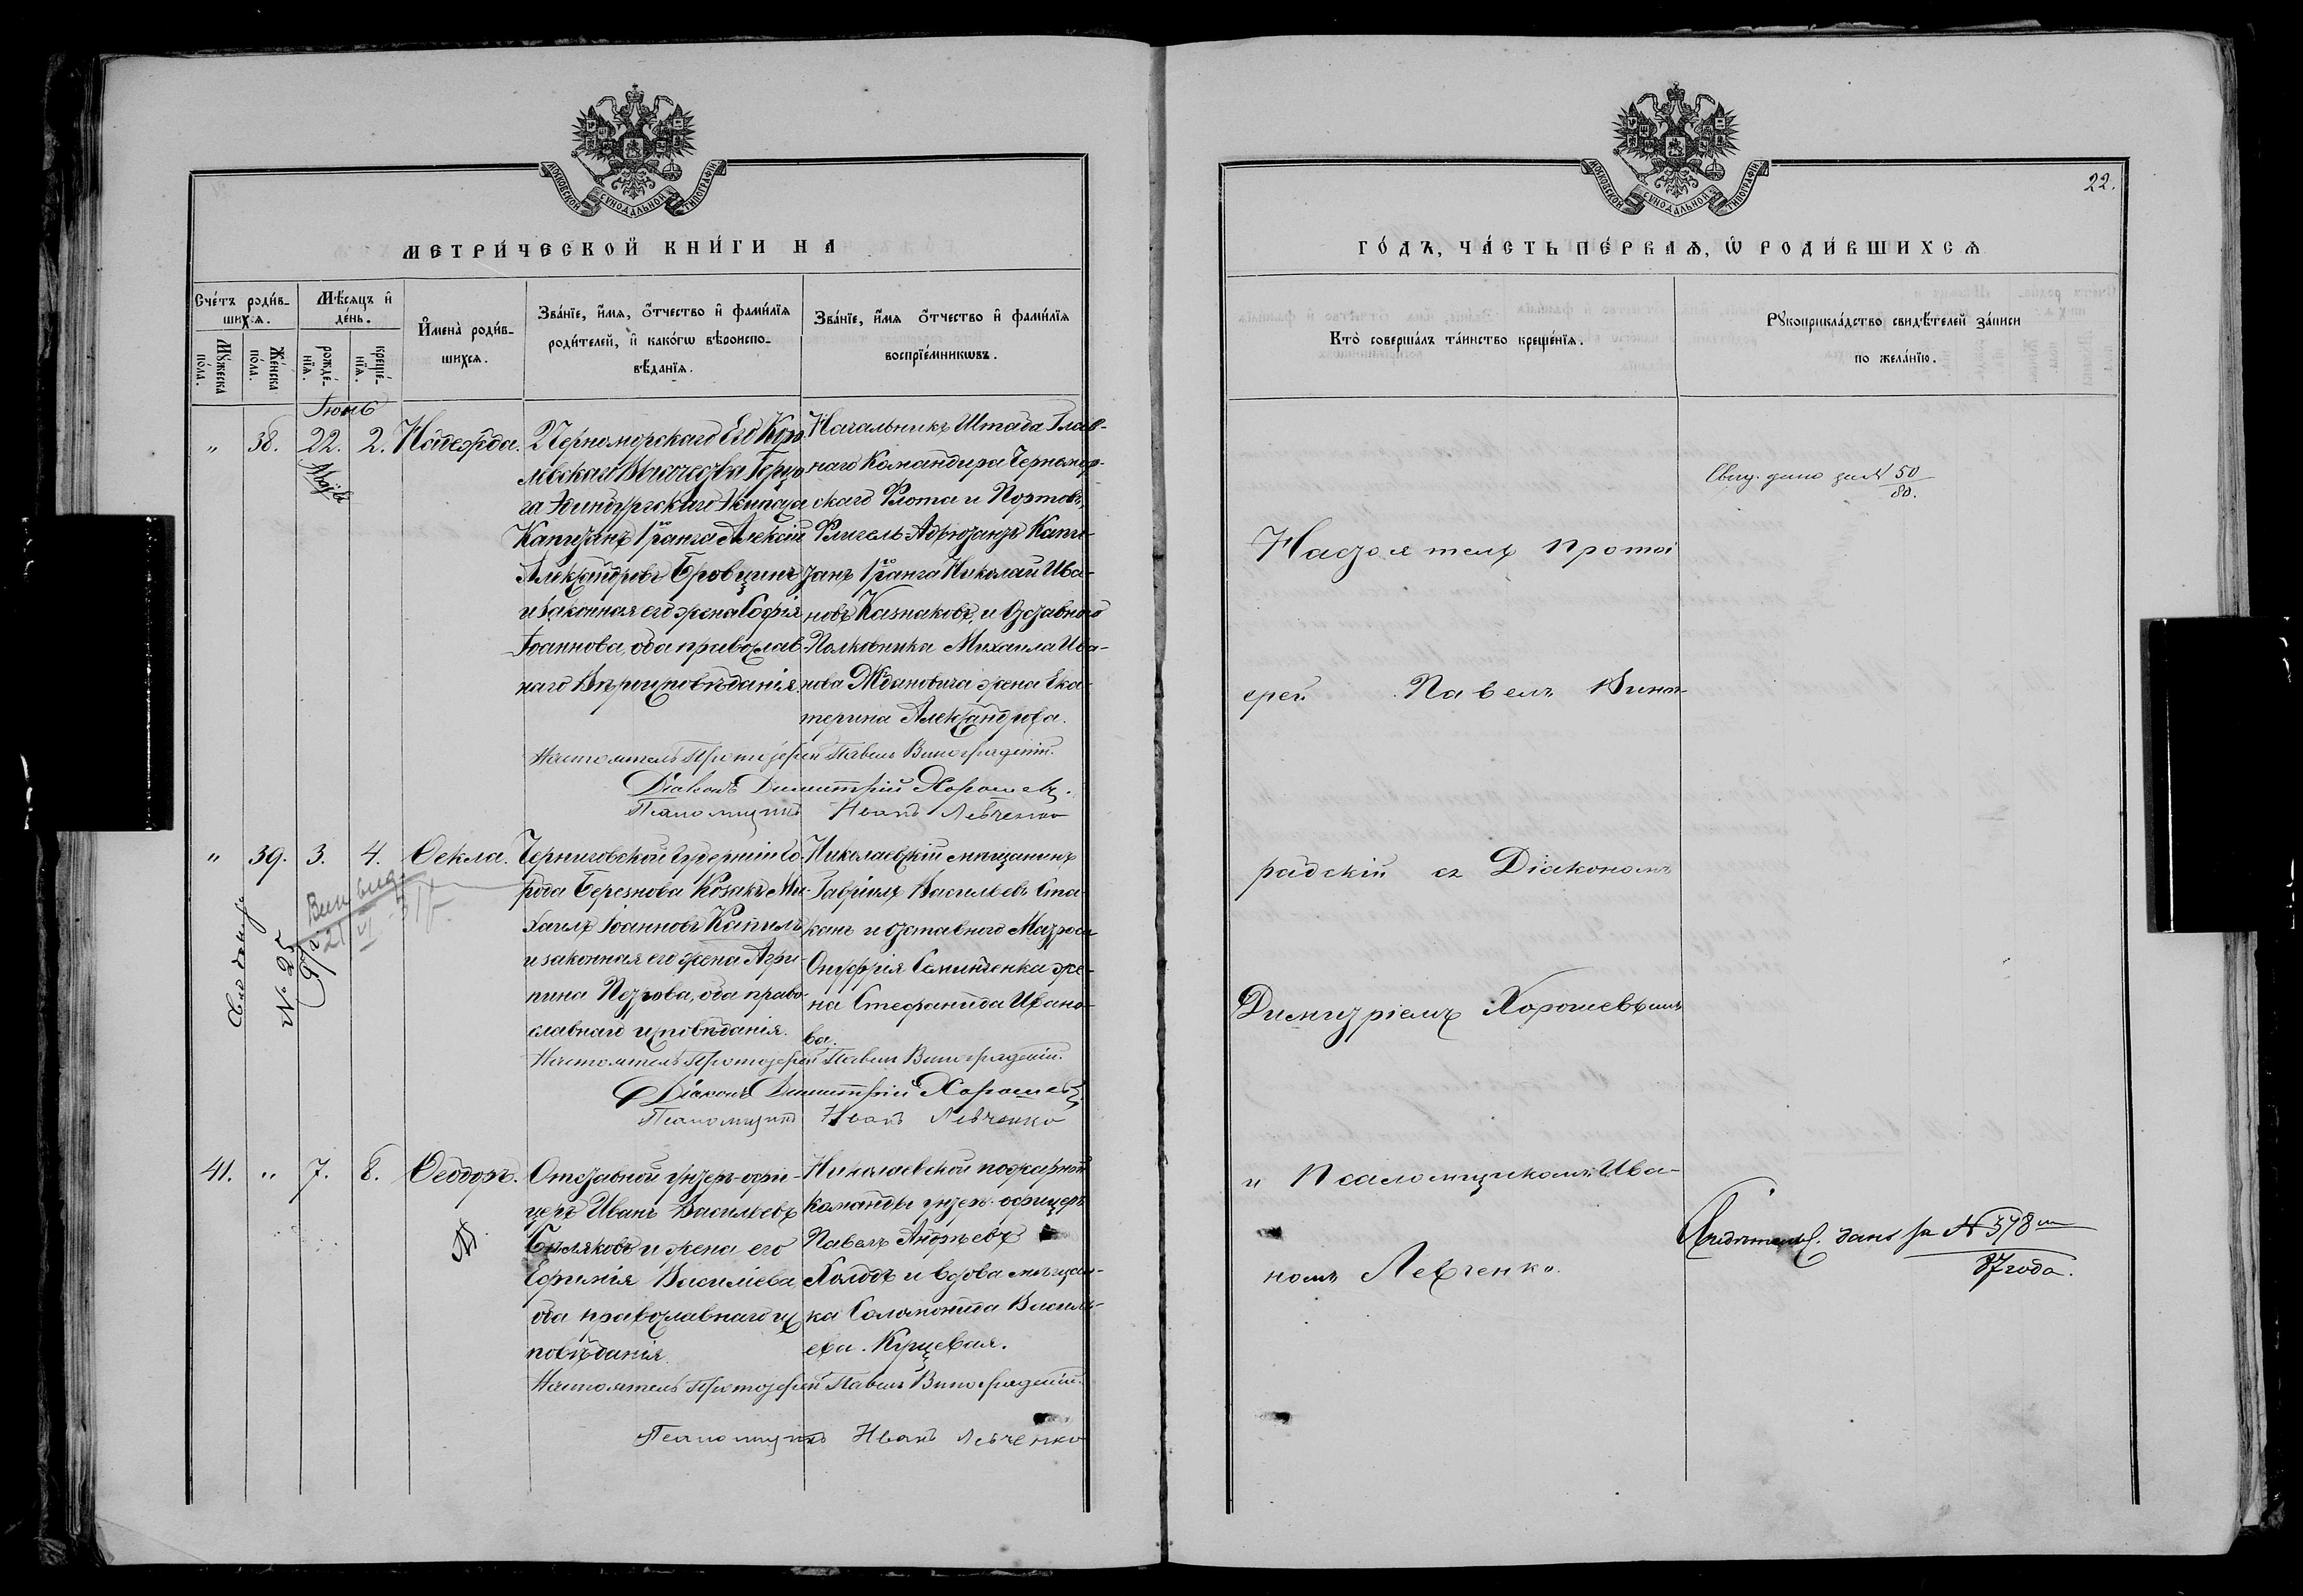 МОСКОВСКОЙ СѴНОДАЛЬНОЙ ТИПОГРАФІИ
МЕТРИ́ЧЕСКОЙ КНИ́ГИ НА
Сче́тъ роди́в-
шихсѧ.
Мѣ́сѧцъ и҆
де́нь.
И҆мена̀ роди́в-
шихсѧ.
Зва́нїе, и҆́мѧ, ѻ҆́тчество и҆ фами́лїѧ
роди́телей, и҆ како́гѡ вѣроиспо-
вѣ́данїѧ.
Зва́нїе, и҆́мѧ ѻ҆́тчество и҆ фами́лїѧ
воспрїе́мникѡвъ.
Мꙋ́жеска
по́ла.
Же́нска
по́ла.
рожде́-
нїѧ.
креще́-
нїѧ.
Іюнь
" 38. 22. 2. Надежда.
2 Черноморскаго Его Коро-
левскаго Высочества Герцо-
га Эдинбургскаго Экипажа
Капитанъ 1го ранга Алексій
Александровъ Бровцинъ
и законная его жена Софія
Іоаннова, оба православ-
наго Вѣроисповѣданія.
Начальникъ Штаба Глав-
наго Командира Черномор-
скаго Флота и Портовъ,
Флигель Адъютантъ Капи-
танъ 1го ранга Николай Ива-
новъ Казнаковъ, и Отставного
Полковника Михаила Ива-
нова Ждановича жена Ека-
терина Александрова.
Настоятель Протоіерей Павелъ Виноградскій.
Діаконъ Димитрій Хорошевъ.
Псаломщикъ Иванъ Левченко
" 39. 3. 4. Ѳекла.
Черниговской Губерніи Го-
рода Березнова Козакъ Ми-
хаилъ Іоанновъ Капилъ
и законная его жена Агри-
пина Петрова, оба право-
славнаго исповѣданія.
Николаевскій мѣщанинъ
Гавріилъ Васильевъ Ста-
канъ и отставного Матроса
Онуфрія Саминченка же-
на Стефанида Ивано-
ва.
№ 25
Настоятель Протоіерей Павелъ Виноградскій.
Діаконъ Димитрій Хорошевъ
Псаломщикъ Иванъ Левченко
41. " 7. 8. Ѳеодоръ.
Отставной унтеръ-офи-
церъ Иванъ Васильевъ
Бѣляковъ и жена его
Ефимія Василіева,
оба православнаго ис-
повѣданія.
Николаевской пожарной
команды унтеръ-офицеръ
Павелъ Андреевъ
Холодъ и вдова мѣщан-
ка Соломонида Василь-
ева Курцевая.
Настоятель Протоіерей Павелъ Виноградскій.
Псаломщикъ Иванъ Левченко
МОСКОВСКОЙ СѴНОДАЛЬНОЙ ТИПОГРАФІИ
22.
ГО́ДЪ, ЧА́СТЬ ПЕ́РВАѦ, Ѡ҆ РОДИ́ВШИХСѦ
Кто̀ соверша́лъ та́инство креще́нїѧ.
Рꙋкоприкла́дство свидѣ́телей за́писи
по жела́нїю.
Настоятель протоі
ерей Павелъ Виног-
радскій съ Діакономъ
Димитріемъ Хорошевымъ
и Псаломщикомъ Ива-
номъ Левченко.
Свид. дано за № 50
80.
Свидѣтельс. дано за № 378
87 года.